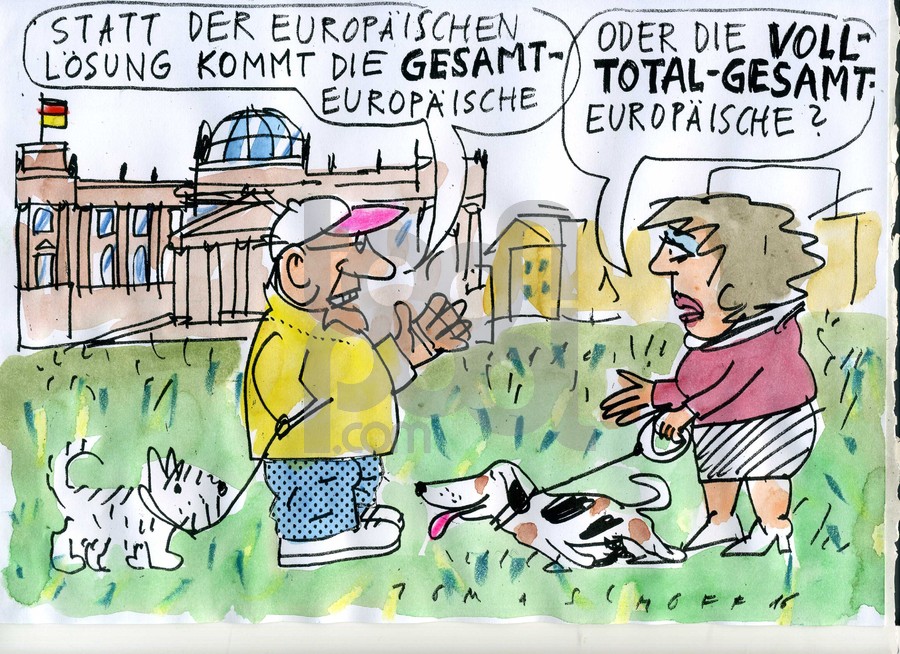 STATT DER EUROPÄISCHEN
LÖSUNG KOMMT DIE GESAMT-
EUROPÄISCHE
ODER DIE VOLL-
TOTAL-GESAMT-
EUROPÄISCHE?
toonpool
.com
TOMASCHOFF 16